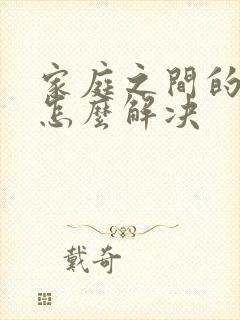 家庭之間的
怎麼解決
戴奇